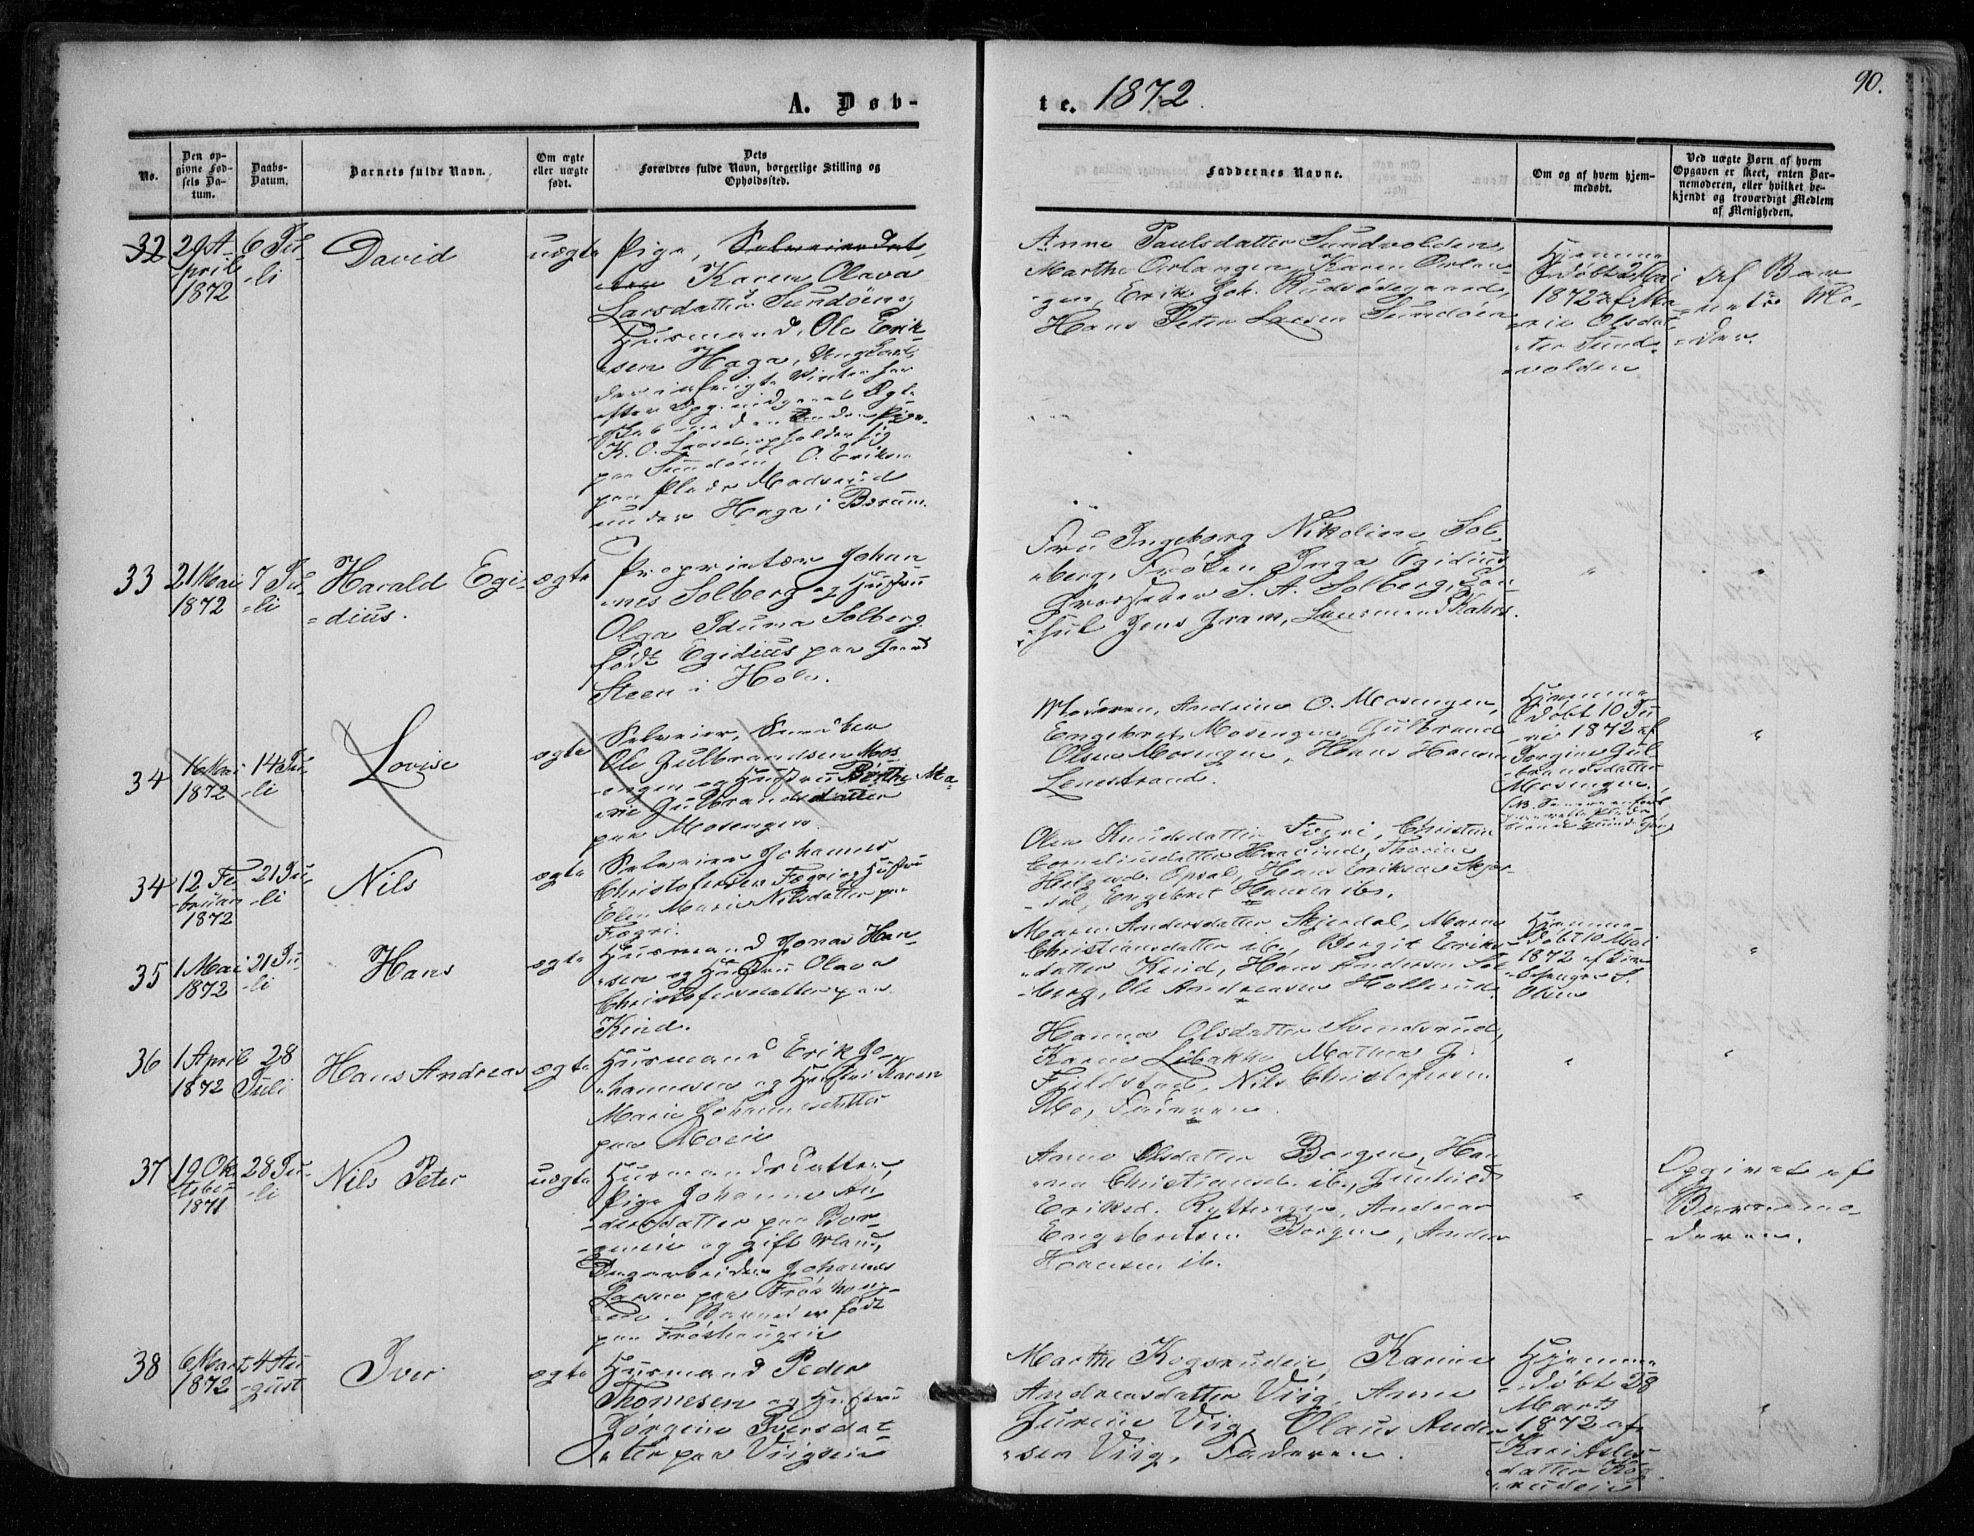 A. Døb-
te. 1872.
90.
No.
Den op-
givne Fød-
sels Da-
tum.
Daabs-
Datum.
Barnets fulde Navn.
Om ægte
eller uægte
født.
Dets
Forældres fulde Navn, borgerlige Stilling og
Opholdssted.
Faddernes Navne.
Om og af hvem hjem-
medøbt.
Ved uægte Børn af hvem
Opgaven er skeet, enten Bar-
nemoderen, eller hvilket be-
kjendt og troværdigt Medlem
af Menigheden.
32
29 A-
pril
1872
6 Ju-
li
David
uægte
Pige,
Karen Olava
Larsdatter Sundøen og
Husmand, Ole Erik-
sen Haga, Ungkarl,
K. O. Larsd. opholder sig
paa Sundøen, O. Eriksen
paa Pladsen Madserud
under Haga i Bærum.
Anne Paulsdatter Sundvolden,
Marthe Orlangen, Karen Orlan-
gen, Erik Joh. Rudsødegaard,
Hans Peter Larsen Sundøen
Hjemme-
døbt 2 Mai
1872 af Ma-
rie Olsdat-
ter Sund-
volden
Af Bar-
nets Mo-
der.
33
21 Mai
1872
7 Ju-
li
Harald Egi-
dius.
ægte
Proprietær Johan-
nes Solberg og Hustru
Olga Iduna Solberg
født Egidius paa Gaard
Steen i Hole.
Fru Ingeborg Nikoline Sol-
berg, Frøken Inga Egidius
S. A. Solberg, Con-
sul Jens Gram, Lensmand Kahrs.
"
"
34
16 Mai
1872
14 Ju-
li
Lovise
ægte
Selveier, Snedker
Ole Gulbrandsen Mos-
engen og Hustru Berthe Ma-
rie Gulbrandsdatter
paa Mosengen.
Moderen, Andrine O. Mosengen,
Engebret Mosengen, Gulbrand
Olsen Mosengen, Hans Hansen
Lenestrand.
Hjemme-
døbt 10 Ju-
ni 1872 af
Jørgine Gul-
brandsdatter
Mosengen.
"
34
12 Fe-
bruar
1872
21 Ju-
li
Nils
ægte
Selveier Johannes
Christofersen Fægri og Hustru
Elen Marie Nilsdatter paa
Fægri.
Olea Knudsdatter Fægri, Christine
Corneliusdatter
Opsal, Hans Eriksen Skjær-
dal, Engebret Hansen ib.
35
1 Mai
1872
21 Ju-
li
Hans
ægte
Husmand Jonas Han-
sen og Hustru Olava
Christofersdatter paa
Kind.
Maren Andersdatter Skjerdal, Maren
Christiansdatter ib., Bergit Eriks-
datter Kind, Hans Andersen Sol-
berg, Ole Andreasen Hollerud.
Hjemme-
døbt 10 Mai
1872 af Kir-
kesanger S.
Olsen
"
36
1 April
1872
28
Juli
Hans Andreas
ægte
Husmand Erik Jo-
hannesen og Hustru Karen
Marie Johannesdatter
paa Moeie
Hanna Olsdatter Svendsrud,
Karen Libakke, Mathea G.
Fjeldstad, Nils Christofersen
Mo, Faderen.
"
"
37
19 Ok-
tober
1871
28 Ju-
li
Nils Peter
uægte
Husmandsdatter,
Pige Johanne An-
dersdatter paa Bor-
geneie og gift Mand,
Dagarbeider Johannes
Larsen paa
Barnet er født
paa Frøshaugeie
Anne Olsdatter Borgen, Han-
na Christiansd. ib., Gunhild
Eriksd. Rytteragen, Andreas
Engebretsen Borgen, Anders
Hansen ib.
"
Opgivet af
Barnemo-
deren.
38
6 Marts
1872
4 Au-
gust
Iver
ægte
Husmand Peder
Thomesen og Hustru
Jørgine Iversdat-
ter paa Viigseie
Marthe Kogsrudeie, Karine
Andreasdatter Viig, Anne
Gurine Viig, Olaus Ander-
sen Viig, Faderen.
Hjemme-
døbt 28
Marts
1872 af
Kari Asles-
datter Kog-
srudeie
"